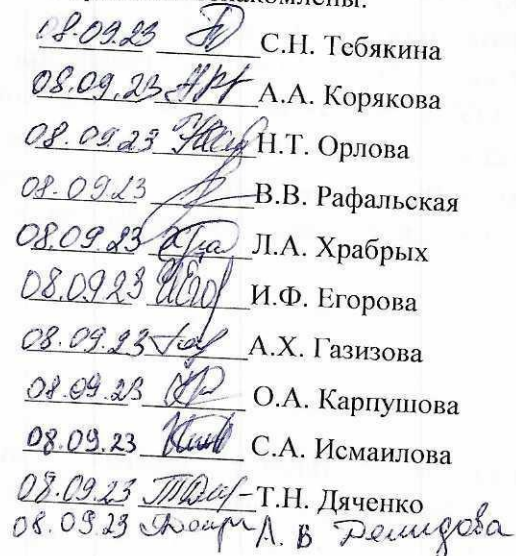 знакомлены:
08.09.23 С.Н. Тебякина
08.09.23 А.А. Корякова
08.09.23 Н.Т. Орлова
08.09.23 В.В. Рафальская
08.09.23 Л.А. Храбрых
08.09.23 И.Ф. Егорова
08.09.23 А.Х. Газизова
08.09.23 О.А. Карпушова
08.09.23 С.А. Исмаилова
08.09.23 Т.Н. Дяченко
08.09.23 Л. В Демидова